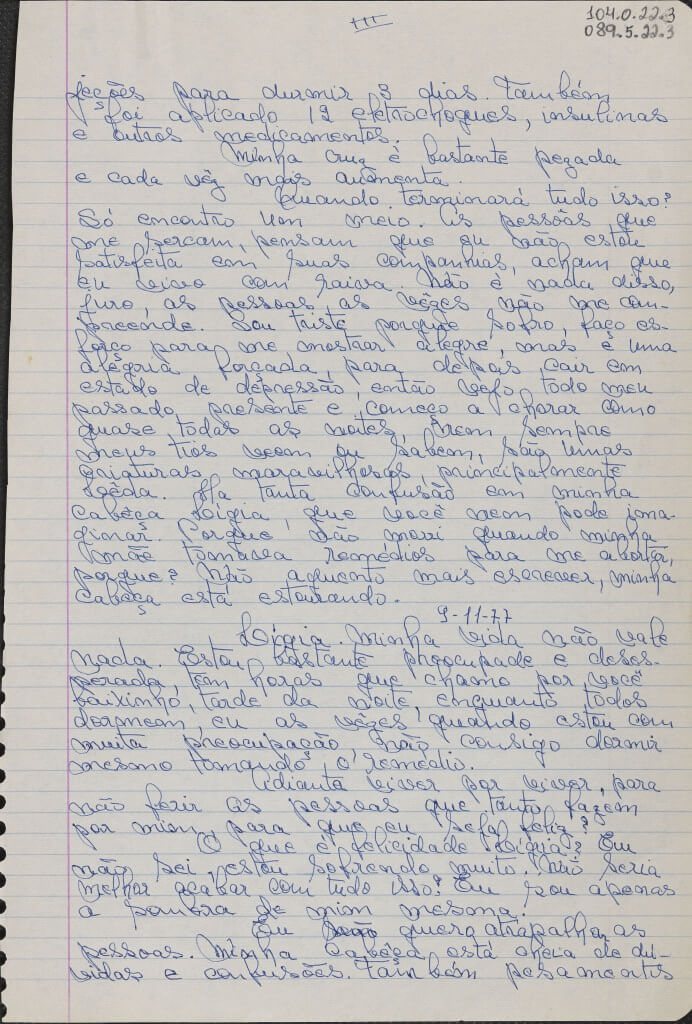 III
104.0.22.3
089.5.22.3
jeções para durmir 3 dias. Também
foi aplicado 12 eletrochoques, insulinas
e outros medicamentos.
Minha cruz é bastante pezada
e cada vêz mais aumenta.
Quando terminará tudo isso?
Só encontro um meio. As pessôas que
me sercam, pensam que eu não estou
satisfeita em suas companhias, acham que
eu vivo com raiva. Não é nada disso,
juro, as pessoas as vêzes não me com-
preende. Sou triste porque sofro, faço es-
forço para me mostrar alegre, mas é uma
alegria forçada, para depois cair em
estado de depressão, então vejo todo meu
passado, presente e começo a chorar como
quase todas as noites, nem sempre
meus tios veem ou sabem, são umas
criaturas maravilhosas, principalmente
Lêda. Ha tanta confusão em minha
cabeça Lígia, que você nem pode ima-
ginar. Porque não morri quando minha
mãe tomava remédios para me abortar,
porque? Não aguento mais escrever, minha
cabeça está estourando.
9-11-77
Lígia. Minha vida não vale
nada. Estou bastante preocupada e deses-
perada, tem horas que chamo por você
baixinho, tarde da noite, enquanto todos
dormem, eu as vêzes quando estou com
muita preocupação, não consigo dormir
mesmo tomando o remédio.
Adianta viver por viver, para
não ferir as pessoas que tanto fazem
por mim, para que eu seja feliz?
O que é felicidade Lígia? Eu
não sei, estou sofrendo muito. Não seria
melhor acabar com tudo isso? Eu sou apenas
a sombra de mim mesma.
Eu não quero atrapalhar as
pessoas. Minha cabeça está cheia de dú-
vidas e confusões. Também pesamentos